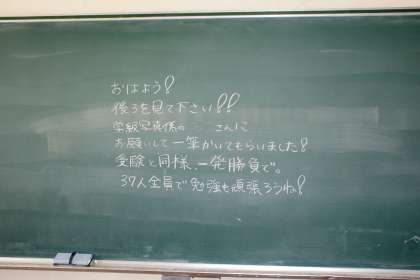 おはよう!
後ろを見て下さい!!
学級写真係の さんに
お願いして一筆かいてもらいました!
受験と同様、一発勝負で。
37人全員で勉強も頑張ろうね!